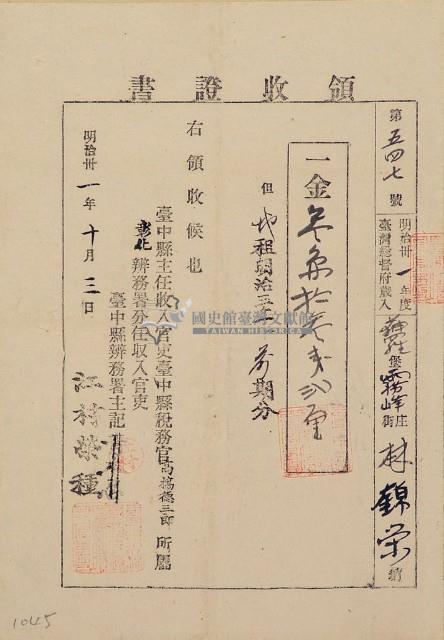 領收證書
第五四七號
明治卅一年度
臺灣總督府歲入
堡霧峰庄街林錦榮殿
一金
拾
但地租明治
前期分
右領收候也
明治卅一年十月三日
臺中縣主任收入官吏臺中縣稅務官高橋德三郎所屬
彰化辨務署分任收入官吏
臺中縣辨務署主記
江村榮種
國史館臺灣文獻館
TAIWAN HISTORICA
1045